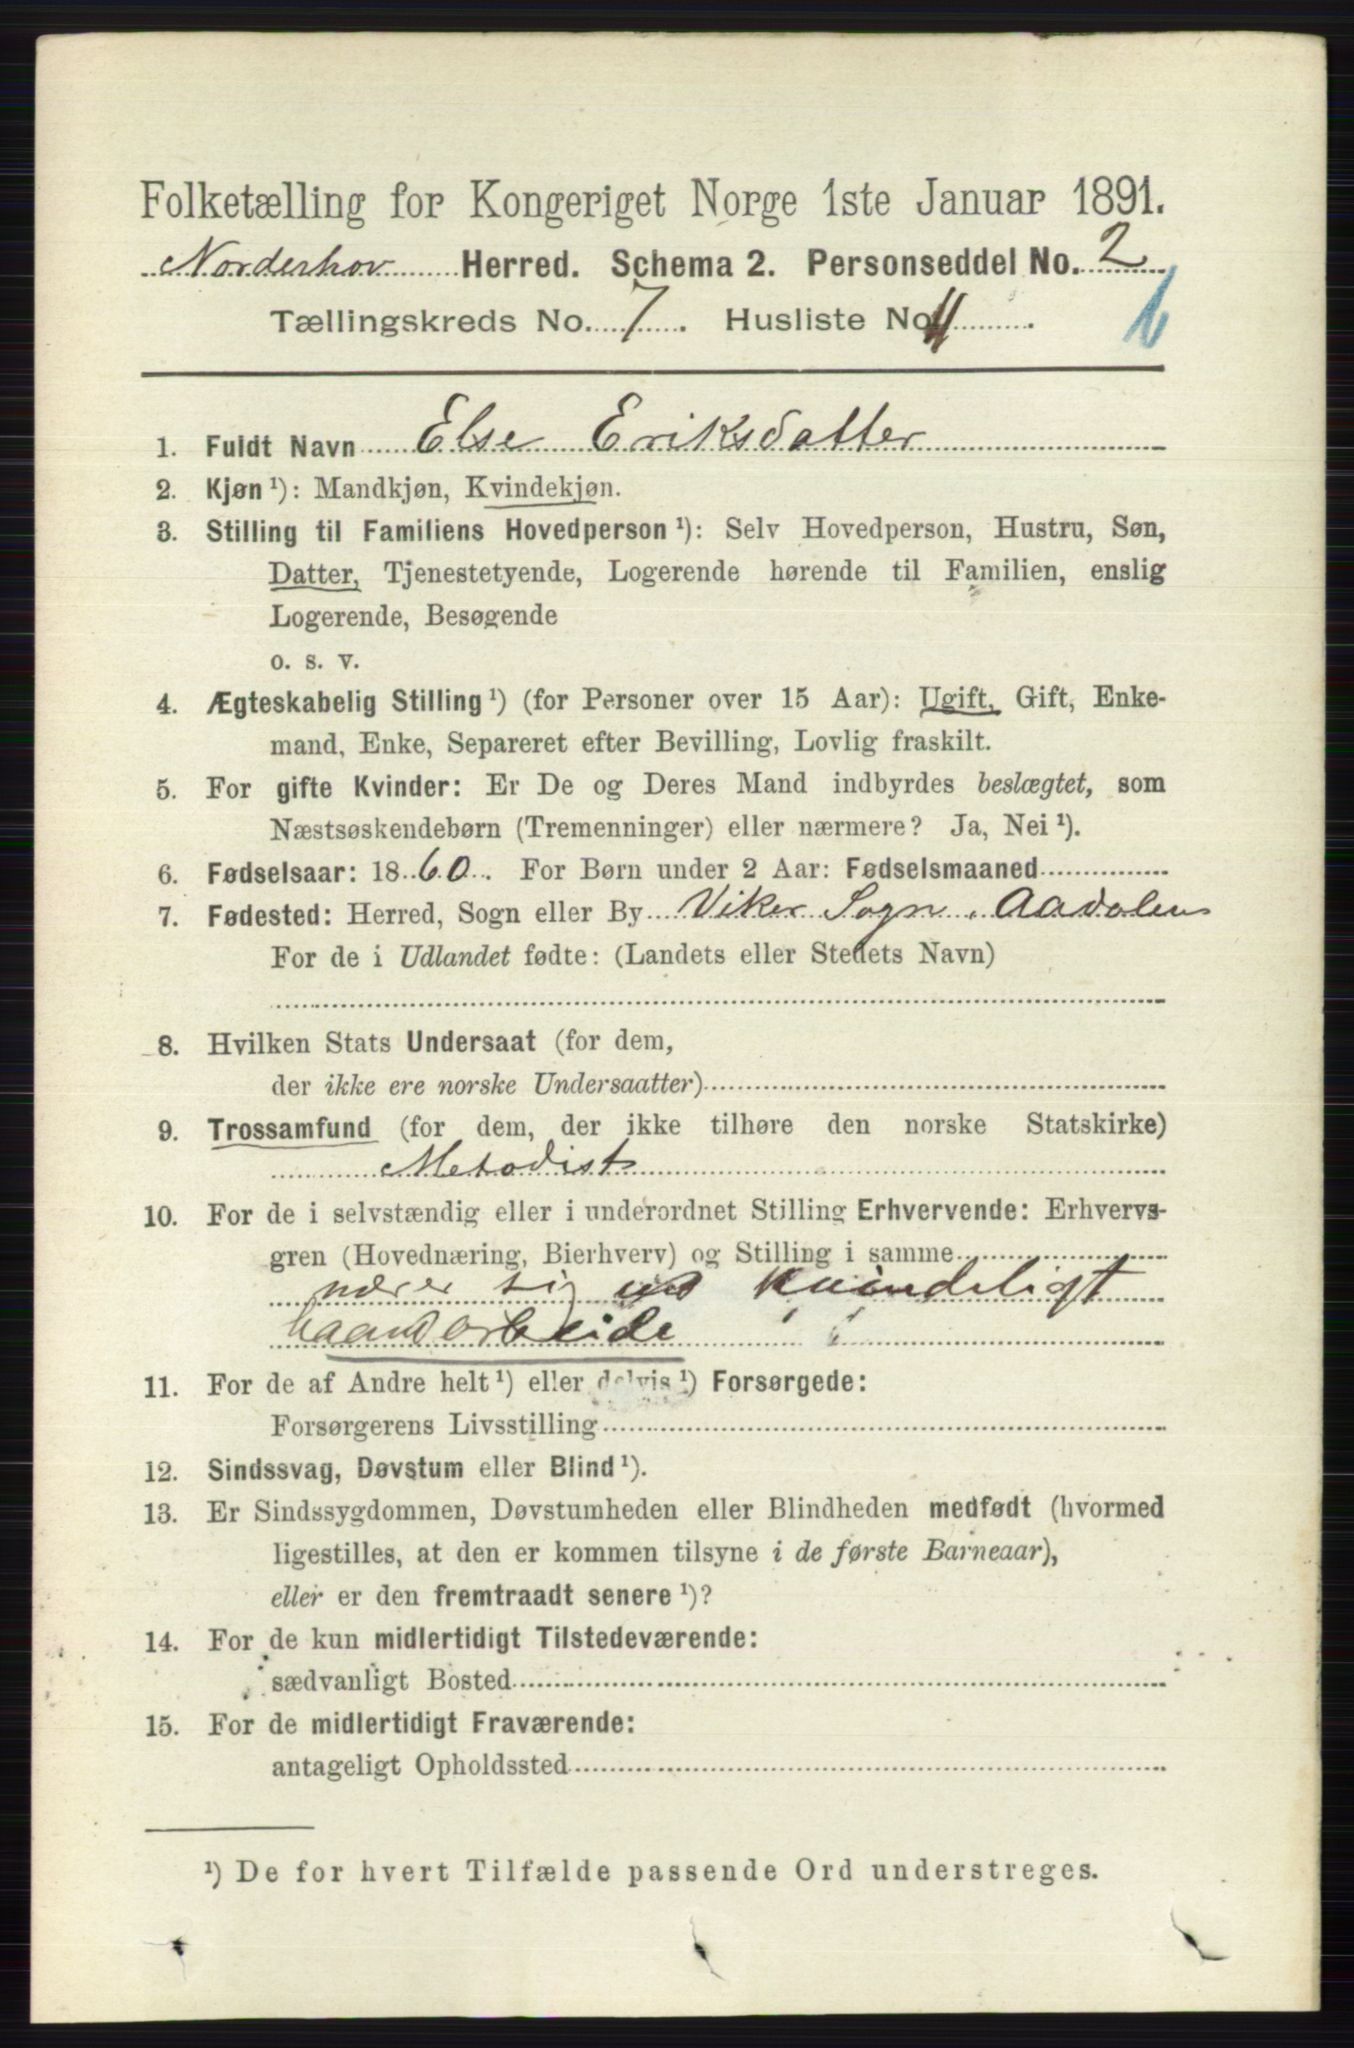 Folketælling for Kongeriget Norge 1ste Januar 1891.
Norderhov Herred. Schema 2. Personseddel No. 2
Tællingskreds No. 7. Husliste No. 11.
1. Fuldt Navn Else Eriksdatter
2. Kjøn ¹): Mandkjøn, Kvindekjøn.
3. Stilling til Familiens Hovedperson ¹): Selv Hovedperson, Hustru, Søn,
Datter, Tjenestetyende, Logerende hørende til Familien, enslig
Logerende, Besøgende
o. s. v.
4. Ægteskabelig Stilling ¹) (for Personer over 15 Aar): Ugift, Gift, Enke-
mand, Enke, Separeret efter Bevilling, Lovlig fraskilt.
5. For gifte Kvinder: Er De og Deres Mand indbyrdes beslægtet, som
Næstsøskendebørn (Tremenninger) eller nærmere? Ja, Nei ¹).
6. Fødselsaar: 1860. For Børn under 2 Aar: Fødselsmaaned
7. Fødested: Herred, Sogn eller By Viker Sogn, Aadalen
For de i Udlandet fødte: (Landets eller Stedets Navn)
8. Hvilken Stats Undersaat (for dem,
der ikke ere norske Undersaatter)
9. Trossamfund (for dem, der ikke tilhøre den norske Statskirke)
Metodist
10. For de i selvstændig eller i underordnet Stilling Erhvervende: Erhvervs-
gren (Hovednæring, Bierhverv) og Stilling i samme
nærer sig ved kvindeligt
haandarbeide
11. For de af Andre helt ¹) eller delvis ¹) Forsørgede:
Forsørgerens Livsstilling
12. Sindssvag, Døvstum eller Blind ¹).
13. Er Sindssygdommen, Døvstumheden eller Blindheden medfødt (hvormed
ligestilles, at den er kommen tilsyne i de første Barneaar),
eller er den fremtraadt senere ¹)?
14. For de kun midlertidigt Tilstedeværende:
sædvanligt Bosted
15. For de midlertidigt Fraværende:
antageligt Opholdssted
¹) De for hvert Tilfælde passende Ord understreges.